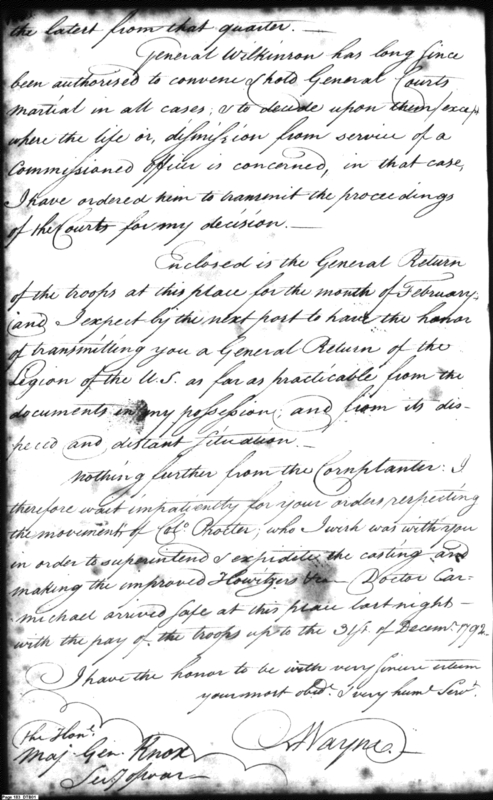 the latest from that quarter. —
General Wilkinson has long since
been authorised to convene & hold General Courts
martial in all cases; & to decide upon them, except
where the life or, dismission from service of a
Commissioned officer is concerned, in that case,
I have ordered him to transmit the proceedings
of the Courts for my decision. —
Enclosed is the General Return
of the troops at this place for the month of February,
and I expect by the next post to have the honor
of transmitting you a General Return of the
Legion of the U.S. as far as practicable from the
documents in my possession; and from its dis-
persed and distant situation —
nothing further from the Cornplanter: I
therefore wait impatiently for your orders respecting
the movement of Colo. Procter; who I wish was with you
in order to superintend & expidite the casting and
making the improved Howitzers &ca— Doctor Car-
michael arrived safe at this place last night —
with the pay of the troops up to the 31st. of Decemr. 1792.
I have the honor to be with very sincere esteem
your most obedt. & very huml. Servt.
The Honl.
Maj. Gen. Knox
Secy of war —
A Wayne
Page 183